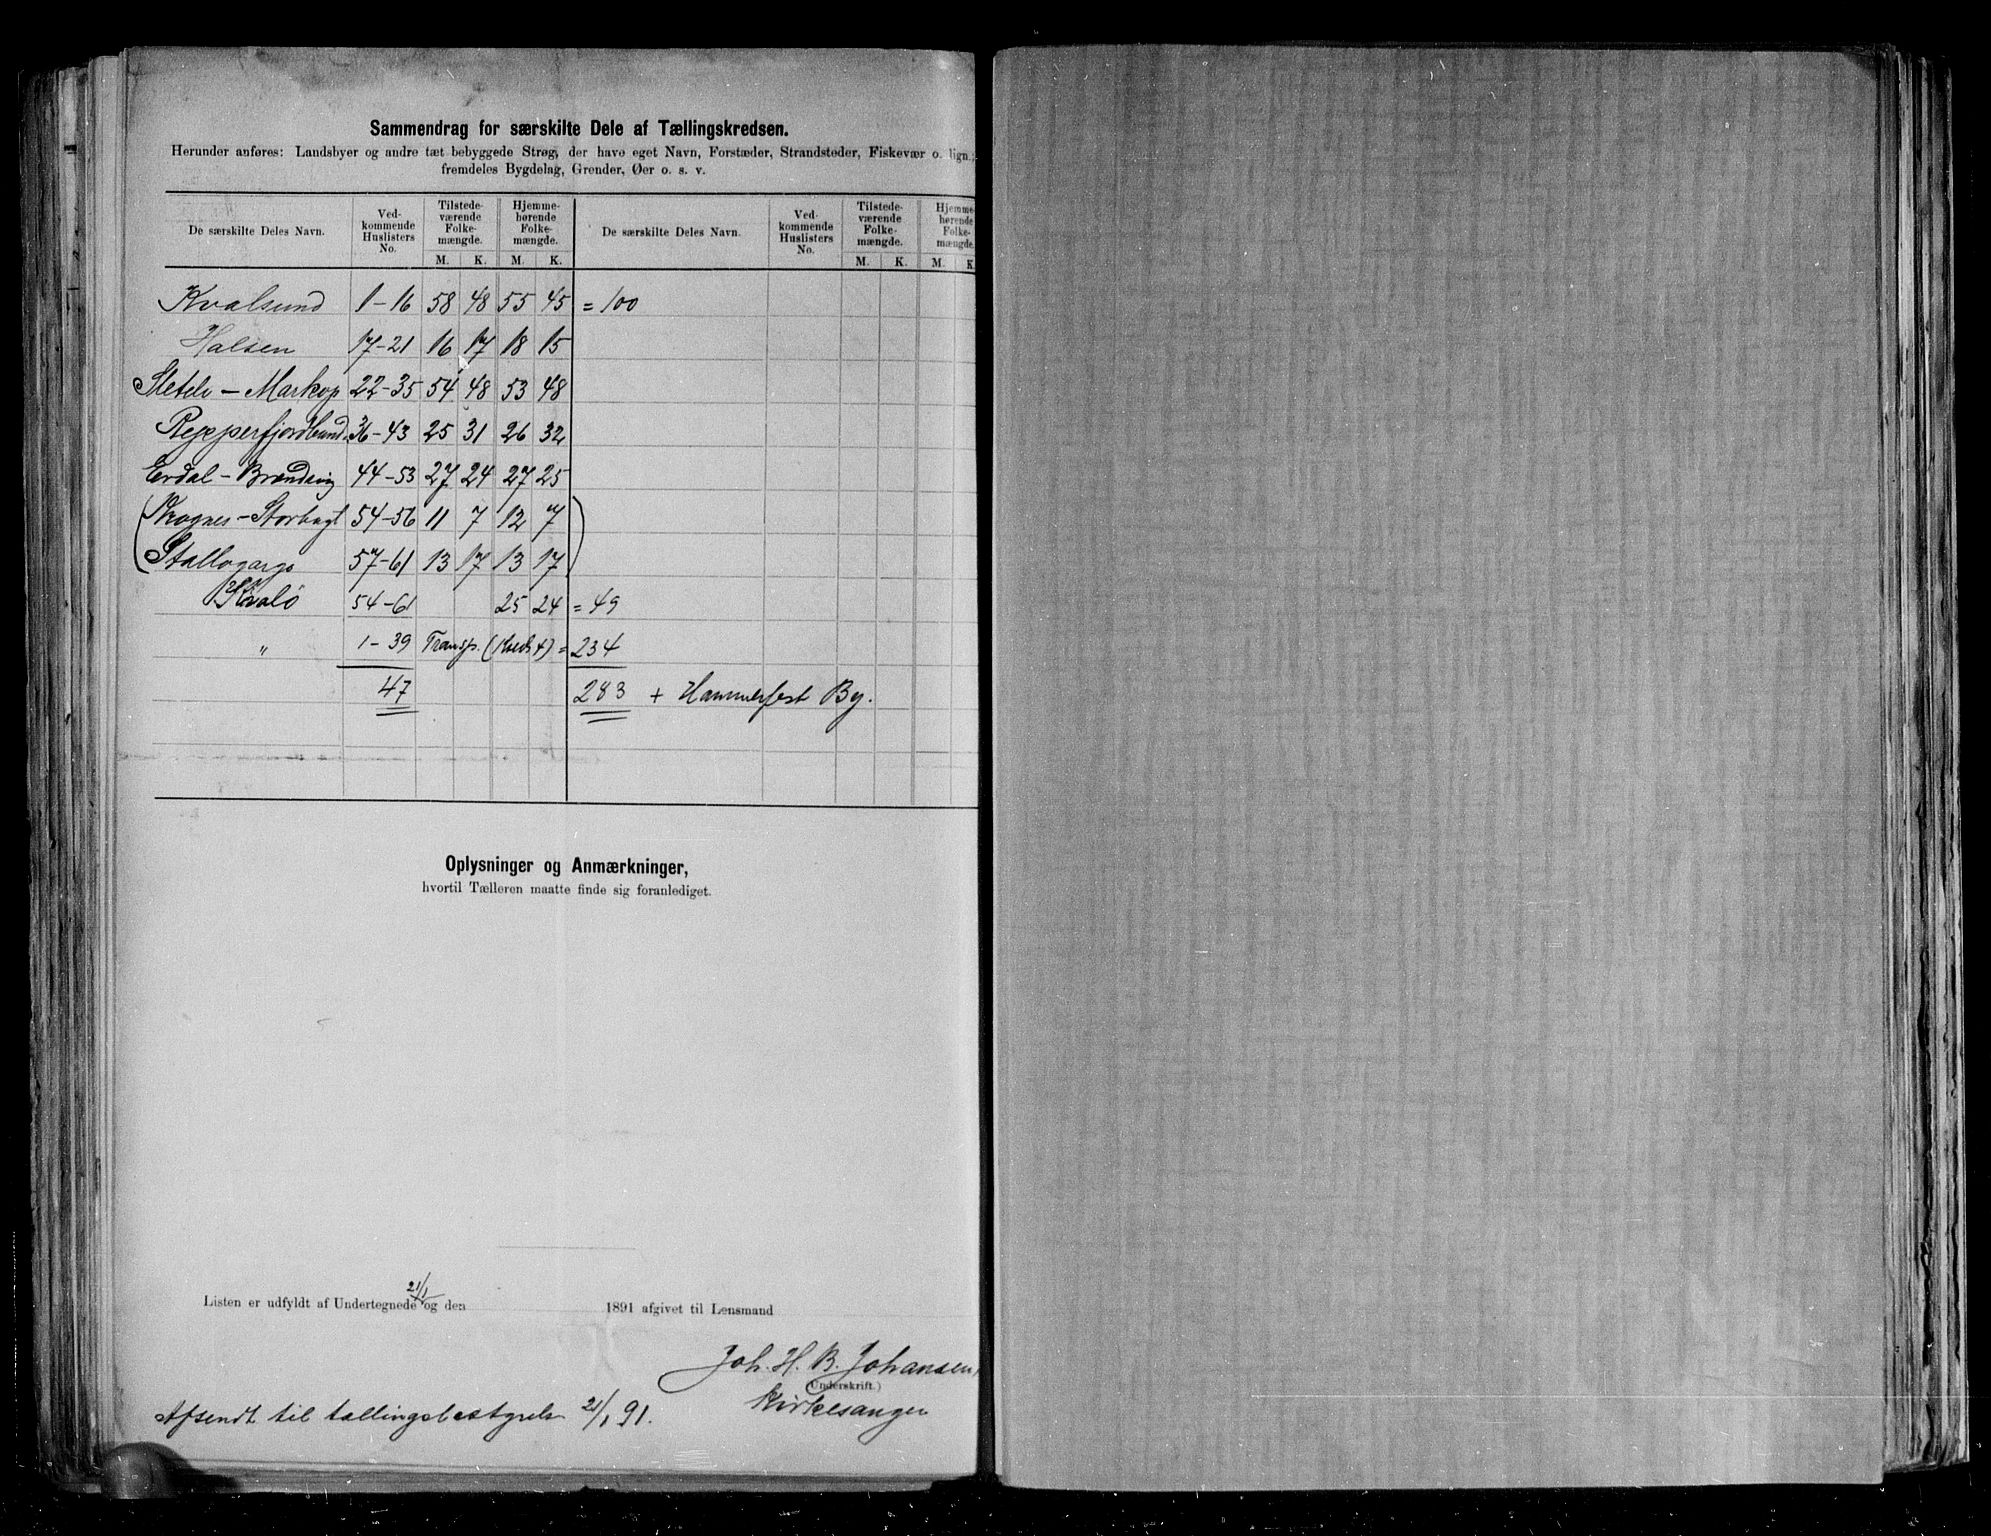 Sammendrag for særskilte Dele af Tællingskredsen.
Herunder anføres: Landsbyer og andre tæt bebyggede Strøg, der have eget Navn, Forstæder, Strandsteder, Fiskevær o. lign.;
fremdeles Bygdelag, Grender, Øer o. s. v.
De særskilte Deles Navn. Ved-kommende Huslisters No. Tilstede-værende Folke-mængde. Hjemme-hørende Folke-mængde. De særskilte Deles Navn. Ved-kommende Huslisters No. Tilstede-værende Folke-mængde. Hjemme-hørende Folke-mængde.
M. K. M. K. M. K. M. K.
Kvalsund 1-16 58 48 55 45 = 100
Halsen 17-21 16 17 18 15
Markop 22-35 54 48 53 48
Repperfjordbund 36-43 25 31 26 32
Erdal - 44-53 27 24 27 25
(Skognes - Storbugt 54-56 11 7 12 7)
(Stallogargo 57-61 13 17 13 17)
Kvalö 54-61 25 24 = 49
" 1-39 Transp. (Kreds 4) = 234
47 283 + Hammerfest By.
Oplysninger og Anmærkninger,
hvortil Tælleren maatte finde sig foranlediget.
Listen er udfyldt af Undertegnede og den 21/1 1891 afgivet til Lensmand
Joh. H. B. Johansen,
(Underskrift.)
Kirkesanger
Afsendt til tællingsbestyrels 21/1 91.